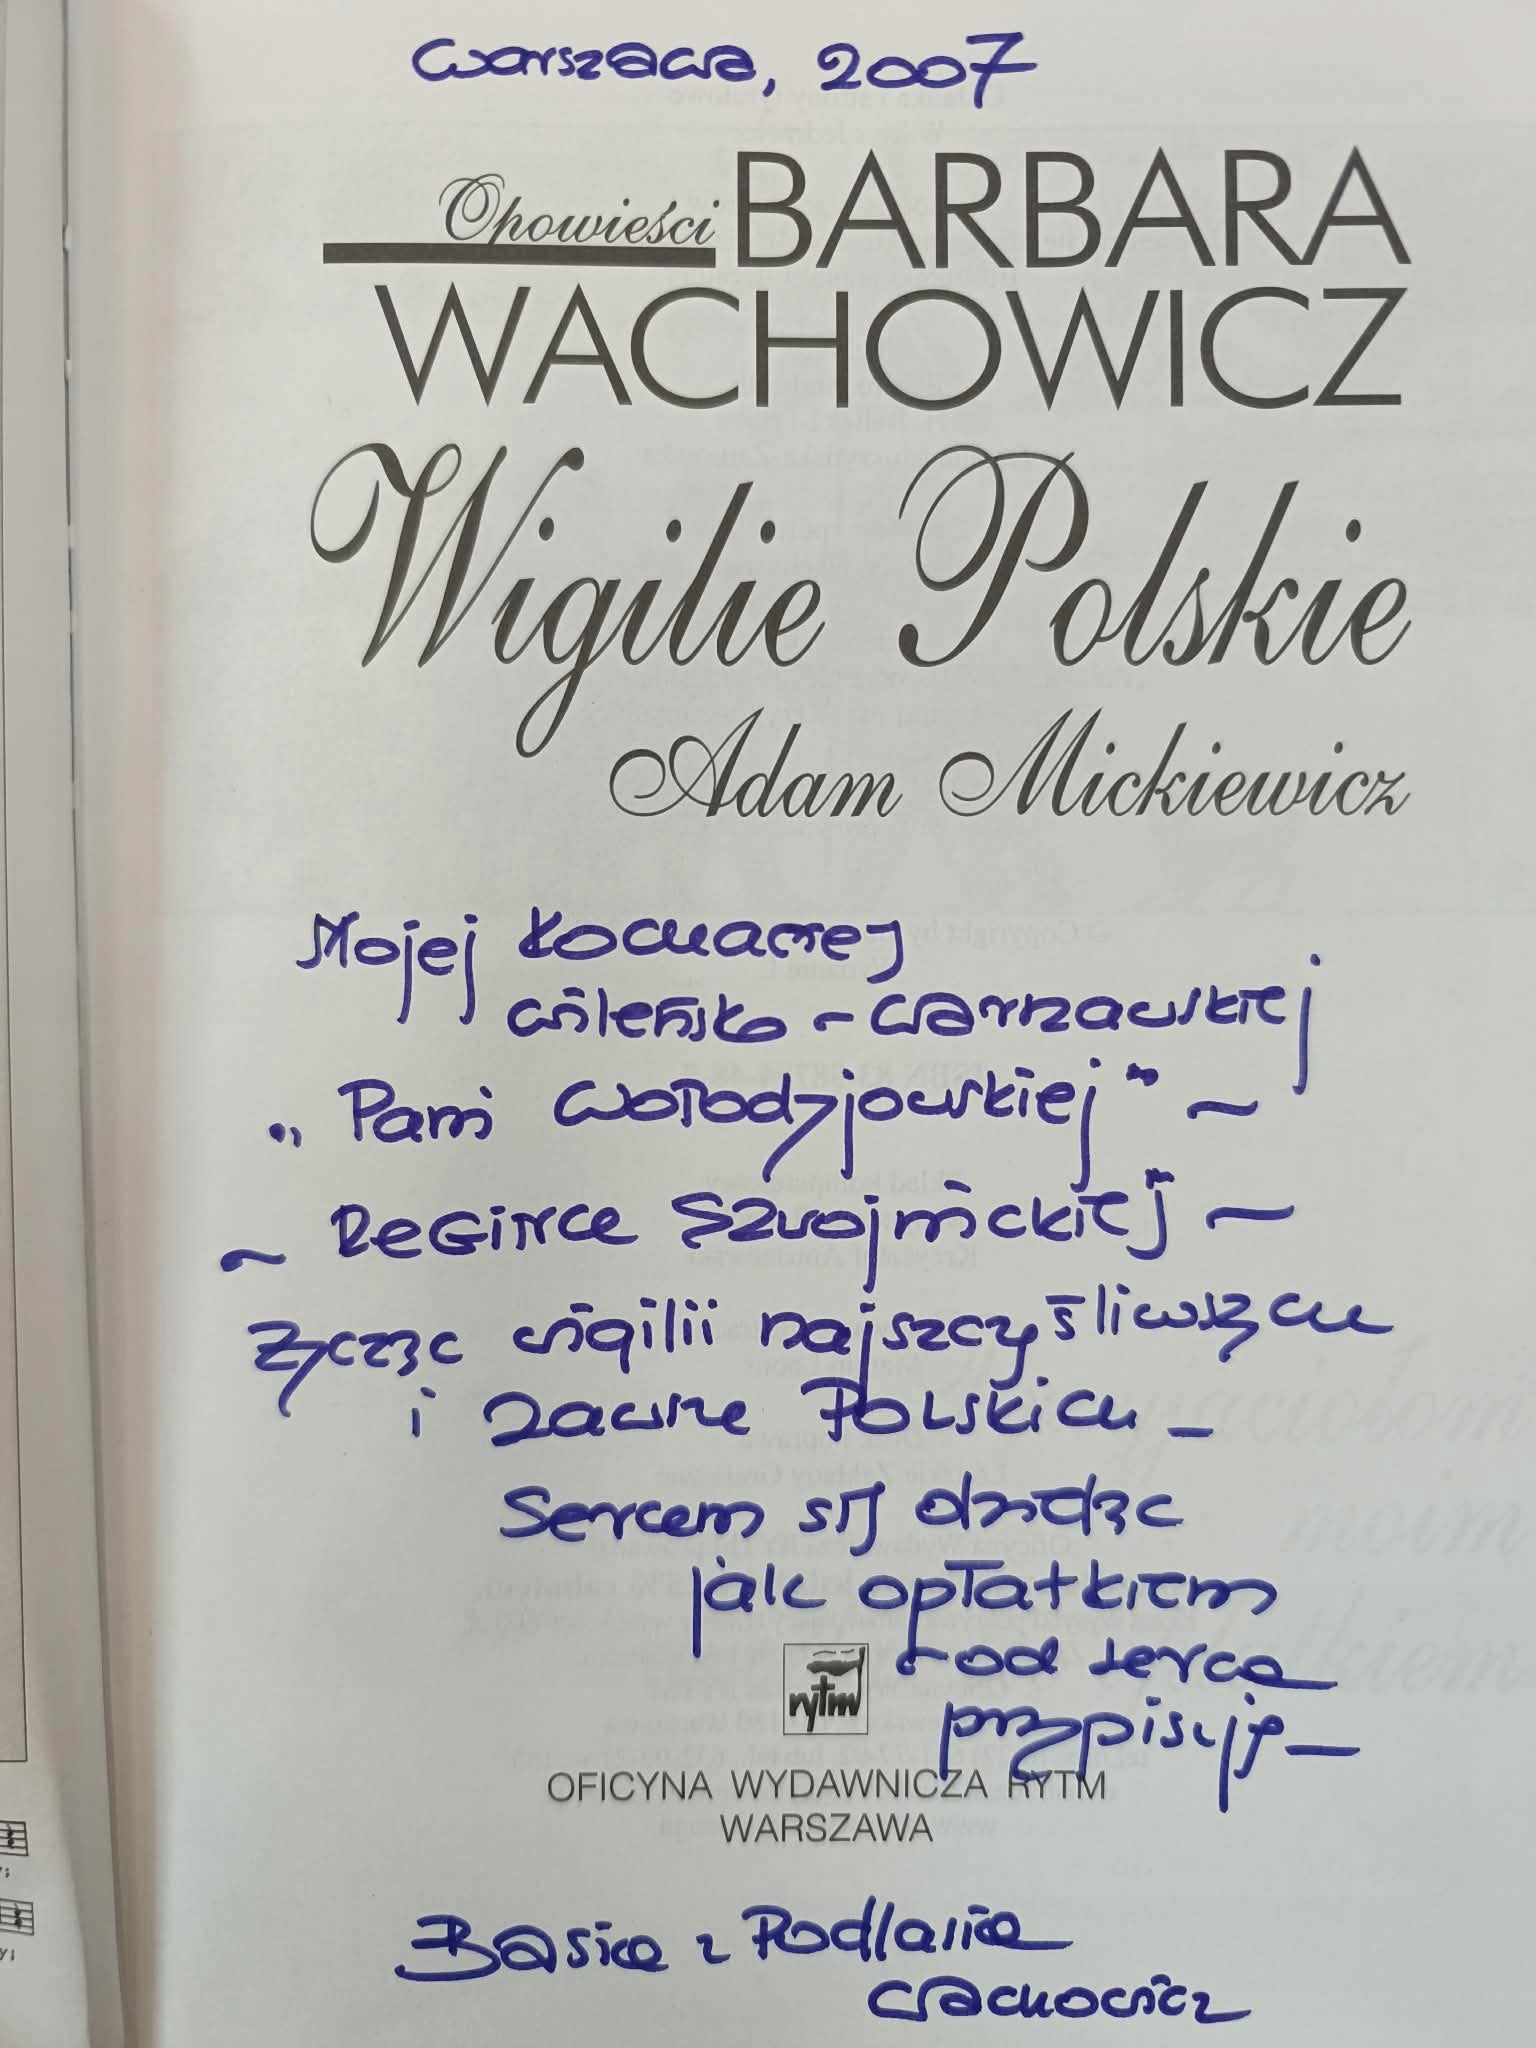 Warszawa, 2007
Opowieści BARBARA
WACHOWICZ
Wigilie Polskie
Adam Mickiewicz
Mojej Kochanej
wileńsko - warszawskiej
„Pani Wołodyjowskiej" ~
~ Regince Szwojnickiej ~
życząc wigilii najszczęśliwszych
i zawsze Polskich _
Sercem się dzieląc
jak opłatkiem
- od serca
przypisuję _
rytm
OFICYNA WYDAWNICZA RYTM
WARSZAWA
Basia z Podlasia
Wachowicz